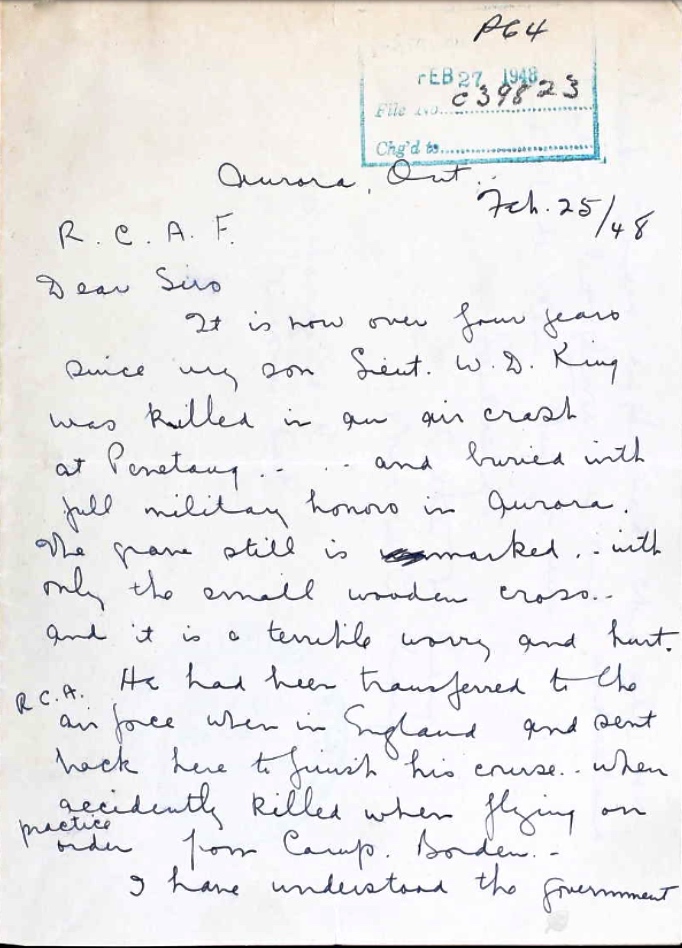 P64
FEB 27 1948
File No. C39823
Chg'd to
Aurora, Ont.
Feb. 25/48
R. C. A. F.
Dear Sirs
It is now over four years
since my son Lieut. W. D. King
was killed in an air crash
at Penetang.. .. and buried with
full military honors in Aurora.
The grave still is marked .. with
only the small wooden cross..
and it is a terrible worry and hurt.
R.C.A. He had been transferred to the
air force when in England and sent
back here to finish his course.. when
accidently killed when flying on
practice
order from Camp. Borden. -
I have understood the government